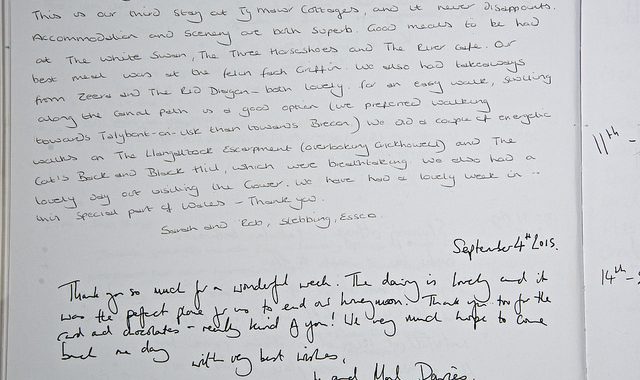 This is our third stay at Ty Mawr Cottages, and it never disappoints.
Accommodation and scenery are both superb. Good meals to be had
at The White Swan, The Three Horseshoes and The River Cafe. Our
best meal was at the felin fach Griffin. We also had takeaways
from Zeera and The Red Dragon - both lovely. For an easy walk, strolling
along the canal path is a good option (we preferred walking
towards Talybont-on-Usk than towards Brecon) We did a couple of energetic
walks on The Llangattock Escarpment (overlooking Crickhowell) and The
Cat's Back and Black Hill, which were breathtaking. We also had a
lovely day out visiting the Gower. We have had a lovely week in
this special part of Wales - Thank you.
Sarah and Rob, Stebbing, Essex
September 4th 2015.
Thank you so much for a wonderful week. The dairy is lovely and it
was the perfect place for us to end our honeymoon. Thank you too for the
card and chocolates - really kind of you! We very much hope to come
back one day
with very best wishes,
and Davies
11th -
14th -